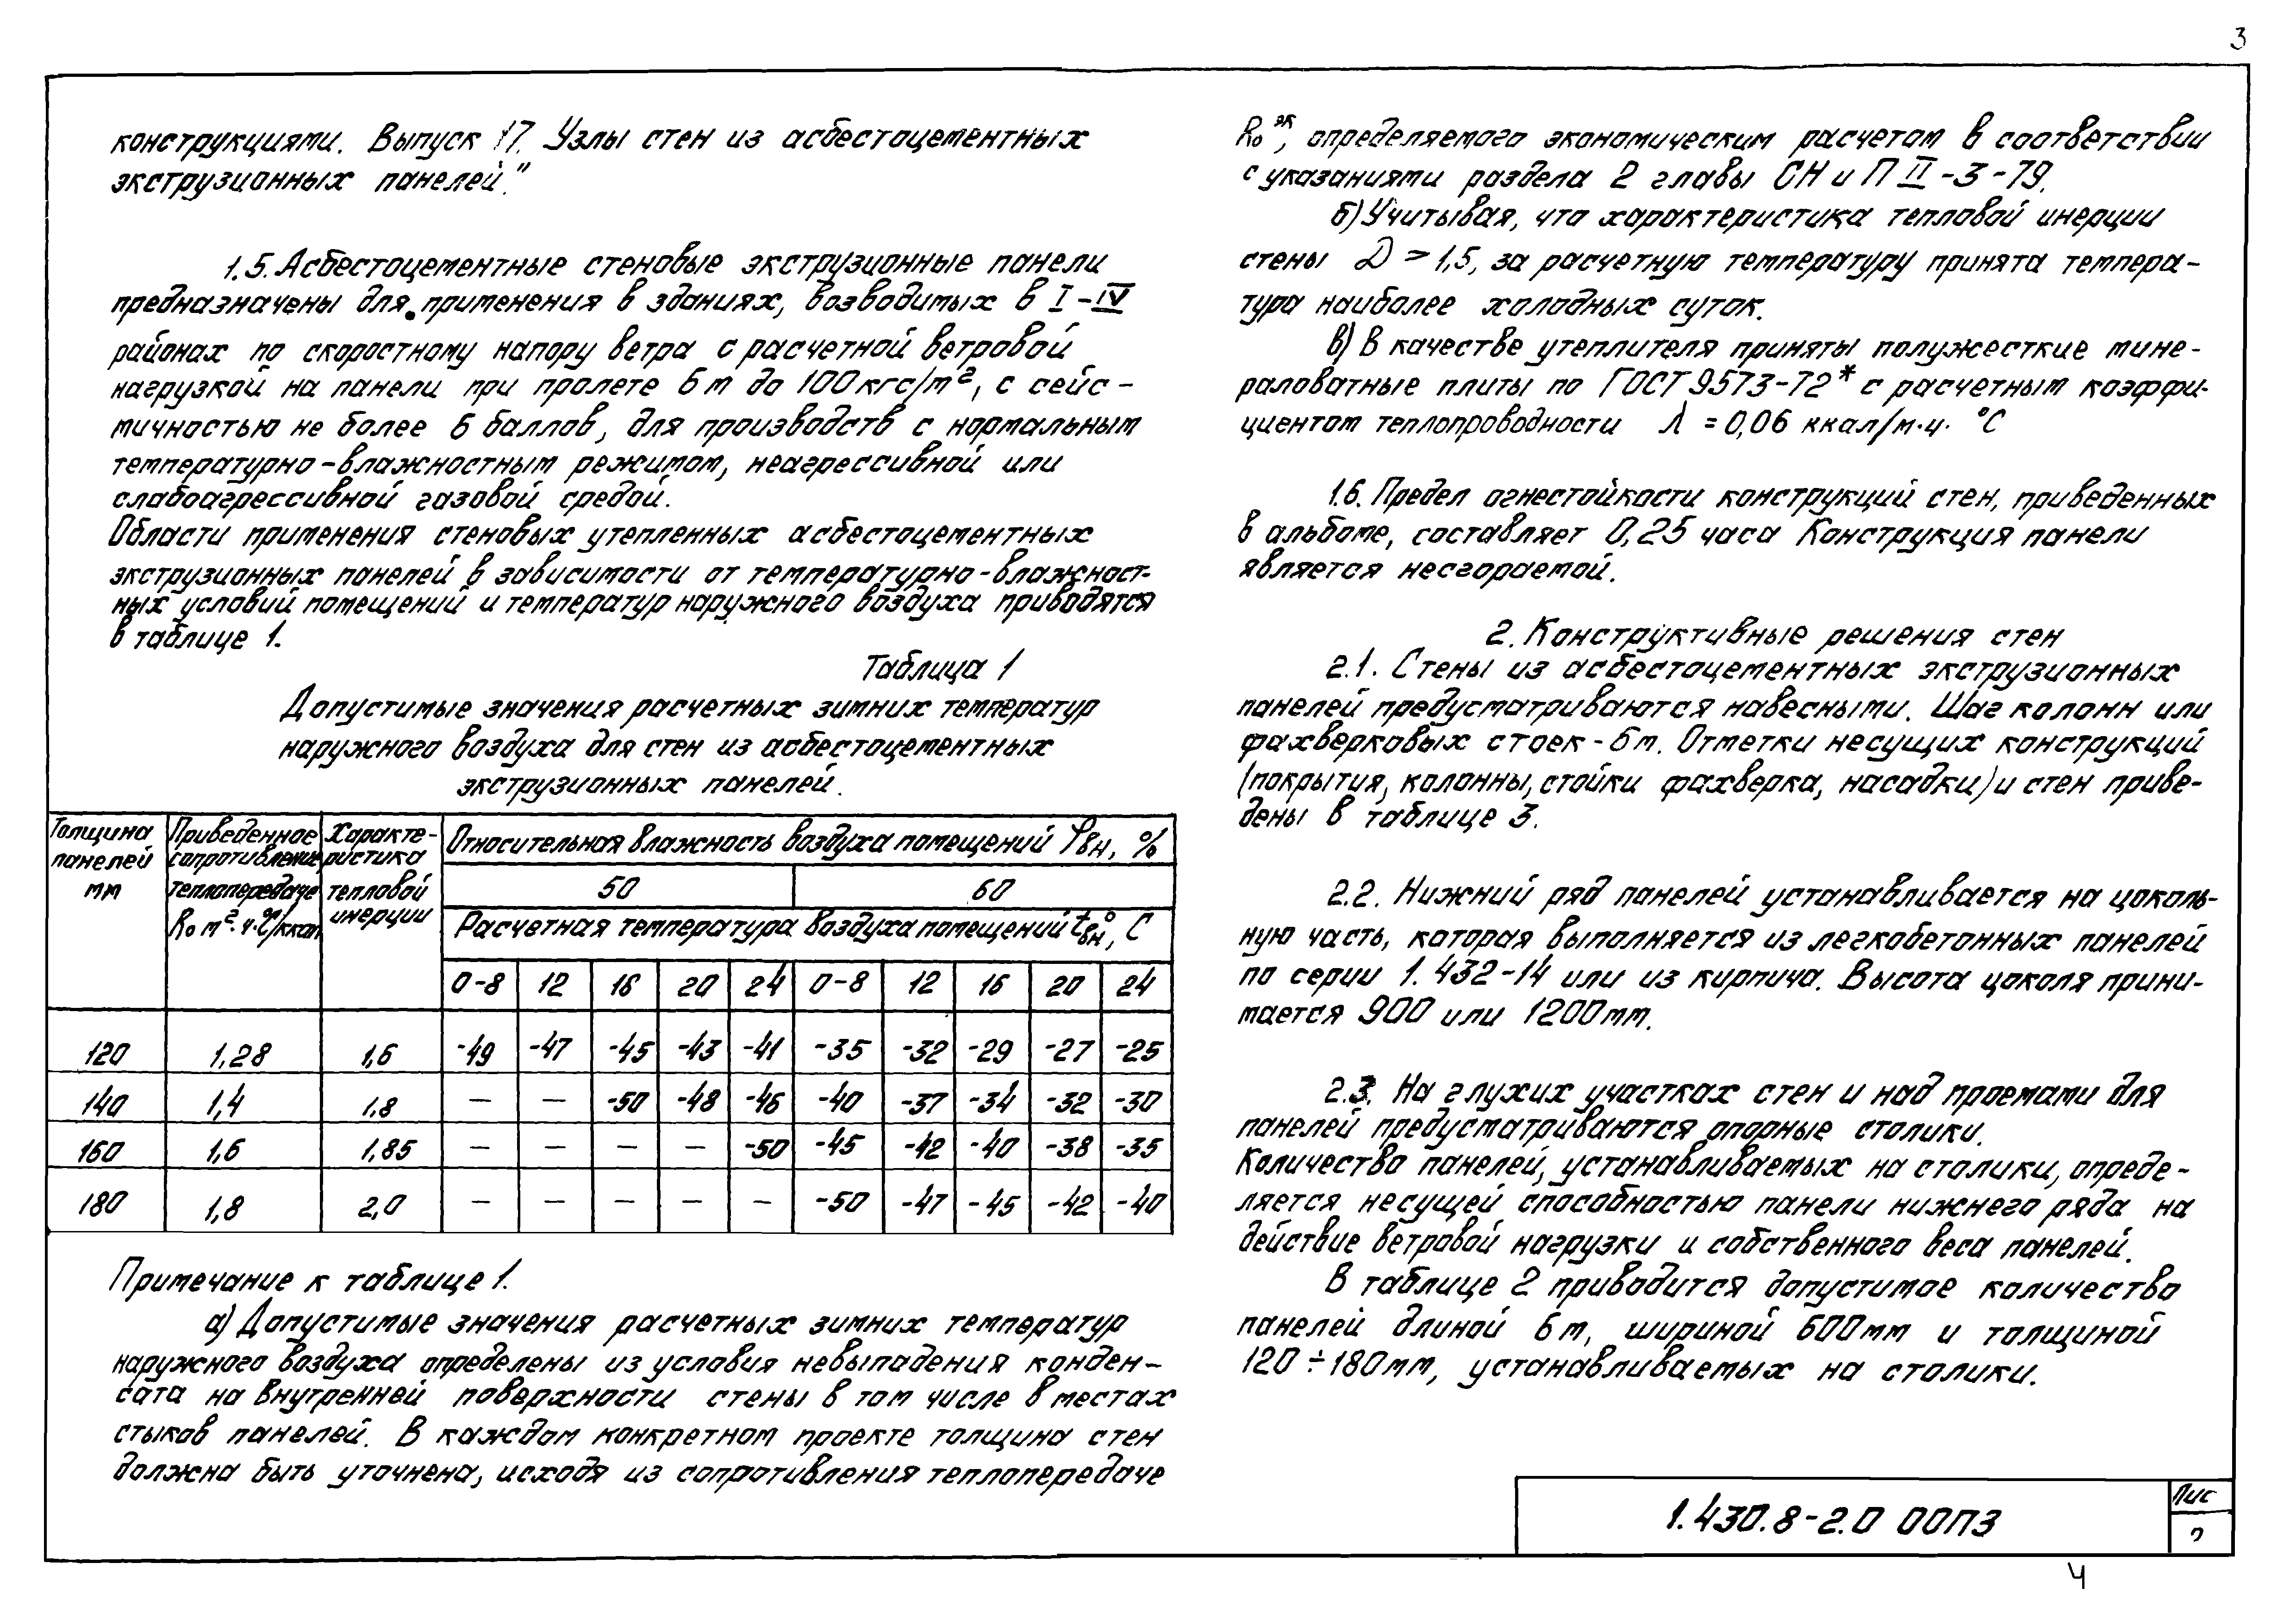 3
конструкциями. Выпуск 17. Узлы стен из асбестоцементных
экструзионных панелей."
1.5. Асбестоцементные стеновые экструзионные панели
предназначены для применения в зданиях, возводимых в I-IV
районах по скоростному напору ветра с расчетной ветровой
нагрузкой на панели при пролете 6м до 100кгс/м², с сейс-
мичностью не более 6 баллов, для производств с нормальным
температурно-влажностным режимом, неагрессивной или
слабоагрессивной газовой средой.
Области применения стеновых утепленных асбестоцементных
экструзионных панелей в зависимости от температурно-влажност-
ных условий помещений и температур наружного воздуха приводятся
в таблице 1.
Таблица 1
Допустимые значения расчетных зимних температур
наружного воздуха для стен из асбестоцементных
экструзионных панелей.
Толщина панелей мм | Приведенное сопротивление теплопередаче R₀ м²·ч·°С/ккал | Характеристика тепловой инерции | Относительная влажность воздуха помещений φвн, %
50 | 60
Расчетная температура воздуха помещений t°вн, С
0-8 | 12 | 16 | 20 | 24 | 0-8 | 12 | 16 | 20 | 24
120 | 1,28 | 1,6 | -49 | -47 | -45 | -43 | -41 | -35 | -32 | -29 | -27 | -25
140 | 1,4 | 1,8 | — | — | -50 | -48 | -46 | -40 | -37 | -34 | -32 | -30
160 | 1,6 | 1,85 | — | — | — | — | -50 | -45 | -42 | -40 | -38 | -35
180 | 1,8 | 2,0 | — | — | — | — | — | -50 | -47 | -45 | -42 | -40
Примечание к таблице 1.
а) Допустимые значения расчетных зимних температур
наружного воздуха определены из условия невыпадения конден-
сата на внутренней поверхности стены в том числе в местах
стыков панелей. В каждом конкретном проекте толщина стен
должна быть уточнена, исходя из сопротивления теплопередаче
R₀ᵊᵏ, определяемого экономическим расчетом в соответствии
с указаниями раздела 2 главы СН и П II-3-79.
б) Учитывая, что характеристика тепловой инерции
стены D > 1,5, за расчетную температуру принята темпера-
тура наиболее холодных суток.
в) В качестве утеплителя приняты полужесткие мине-
раловатные плиты по ГОСТ 9573-72* с расчетным коэффи-
циентом теплопроводности λ = 0,06 ккал/м·ч· °С
1.6. Предел огнестойкости конструкций стен, приведенных
в альбоме, составляет 0,25 часа Конструкция панели
является несгораемой.
2. Конструктивные решения стен
2.1. Стены из асбестоцементных экструзионных
панелей предусматриваются навесными. Шаг колонн или
фахверковых стоек - 6м. Отметки несущих конструкций
(покрытия, колонны, стойки фахверка, насадки) и стен приве-
дены в таблице 3.
2.2. Нижний ряд панелей устанавливается на цоколь-
ную часть, которая выполняется из легкобетонных панелей
по серии 1.432-14 или из кирпича. Высота цоколя прини-
мается 900 или 1200мм.
2.3. На глухих участках стен и над проемами для
панелей предусматриваются опорные столики.
Количество панелей, устанавливаемых на столики, опреде-
ляется несущей способностью панели нижнего ряда на
действие ветровой нагрузки и собственного веса панелей.
В таблице 2 приводится допустимое количество
панелей длиной 6м, шириной 600мм и толщиной
120÷180мм, устанавливаемых на столики.
1.430.8-2.0 00ПЗ
Лис
4